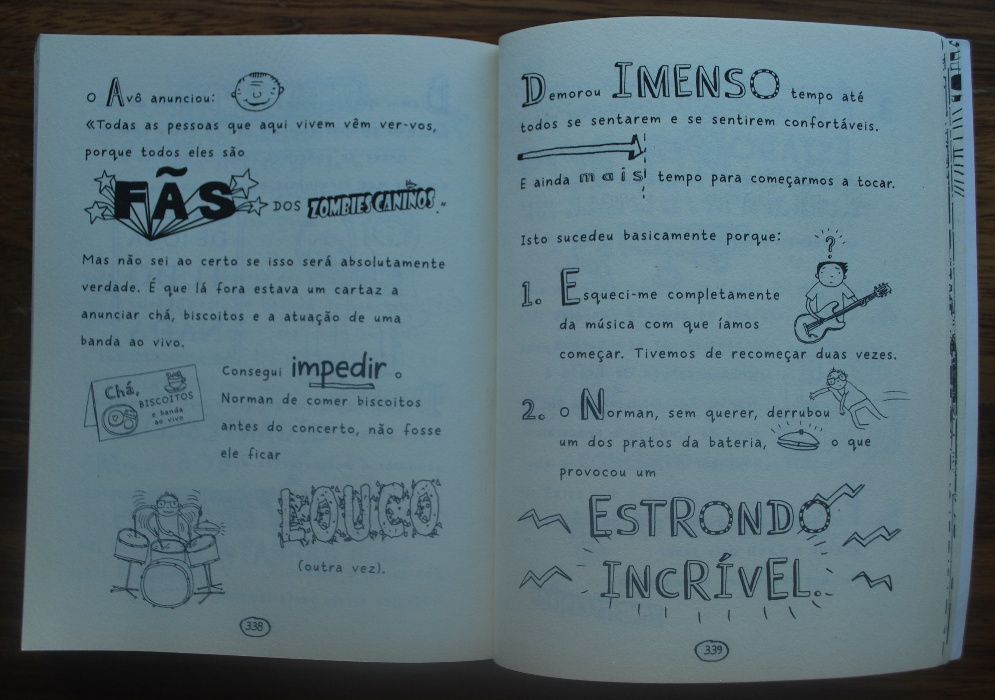 O Avô anunciou:
«Todas as pessoas que aqui vivem vêm ver-vos,
porque todos eles são
FÃS DOS ZOMBIES CANINOS.»
Mas não sei ao certo se isso será absolutamente
verdade. É que lá fora estava um cartaz a
anunciar chá, biscoitos e a atuação de uma
banda ao vivo.
Chá,
BISCOITOS
e banda
ao vivo
Consegui impedir o
Norman de comer biscoitos
antes do concerto, não fosse
ele ficar
LOUCO
(outra vez).
338
Demorou IMENSO tempo até
todos se sentarem e se sentirem confortáveis.
E ainda mais tempo para começarmos a tocar.
Isto sucedeu basicamente porque:
?
1. Esqueci-me completamente
da música com que íamos
começar. Tivemos de recomeçar duas vezes.
2. O Norman, sem querer, derrubou
um dos pratos da bateria, o que
provocou um
ESTRONDO
INCRÍVEL.
339